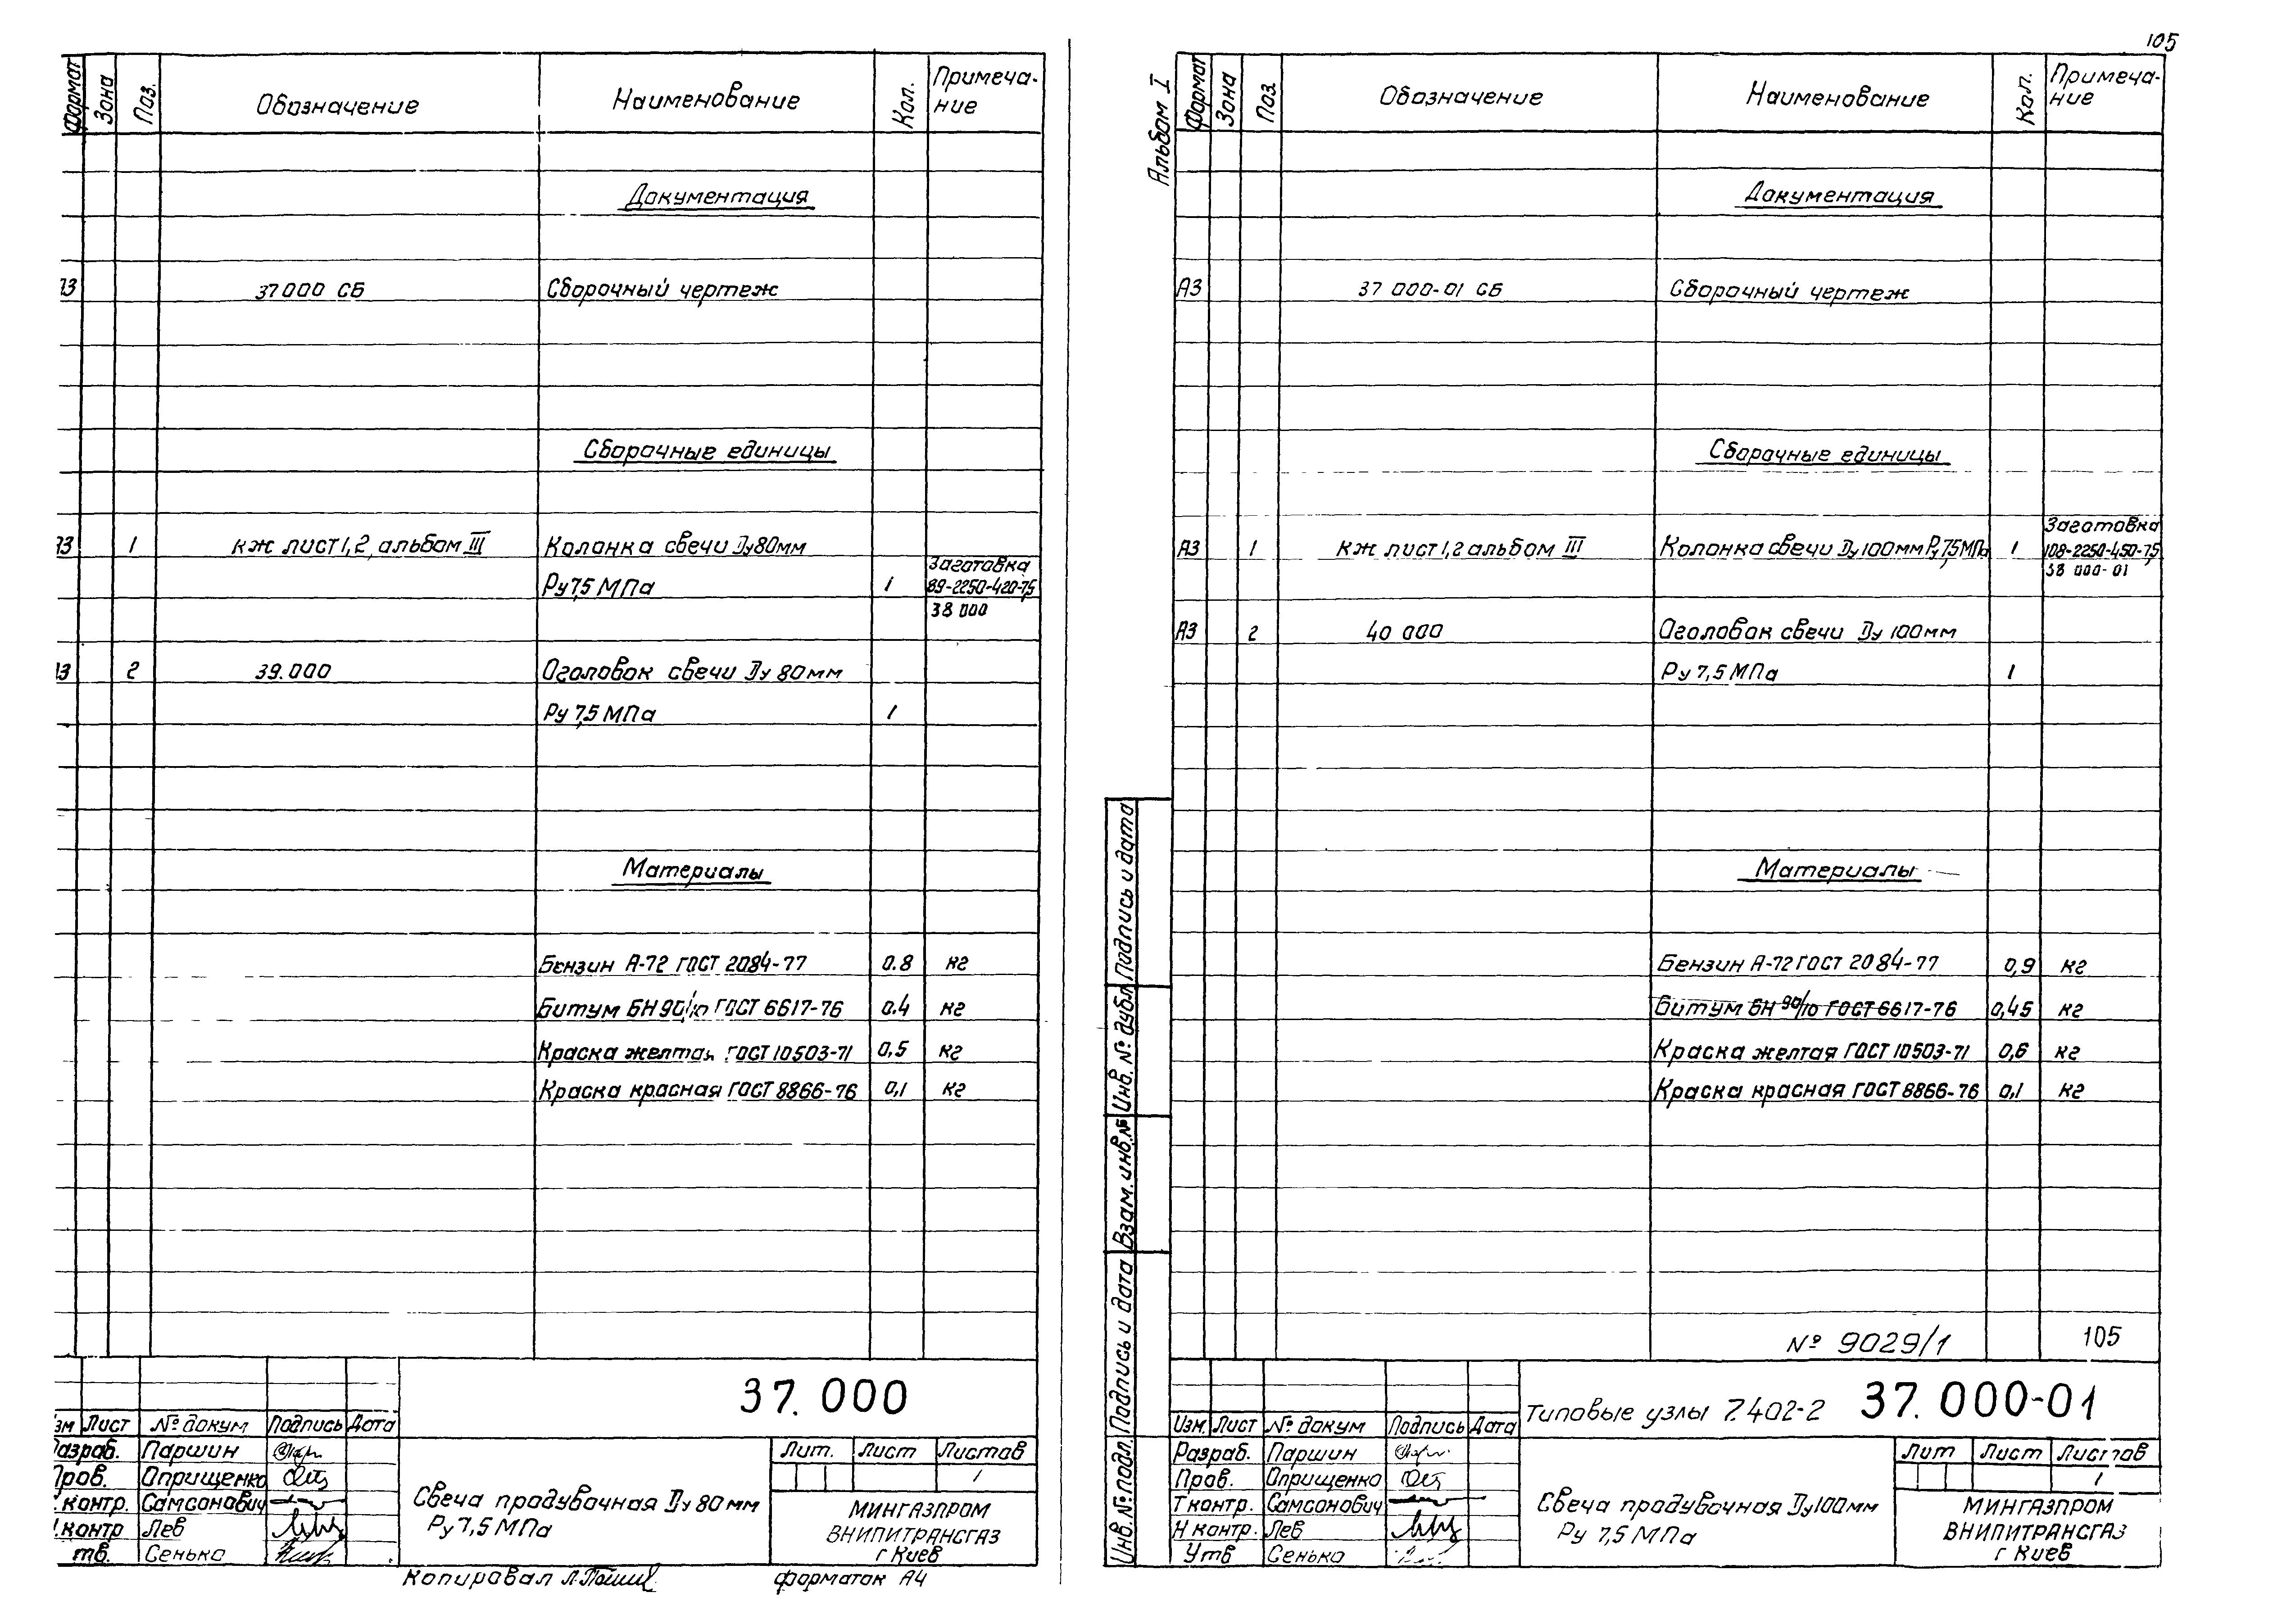 105
Формат Зона Поз. Обозначение Наименование Кол. Примеча-
ние
Документация
37000 СБ Сборочный чертеж
Сборочные единицы
1 кж лист 1,2, альбом III Колонка свечи Ду80мм
Ру7,5 МПа 1 Заготовка
89-2250-420-7,5
38 000
2 39.000 Оголовок свечи Ду 80мм
Ру 7,5 МПа 1
Материалы
Бензин А-72 ГОСТ 2084-77 0.8 кг
Битум БН 90/10 ГОСТ 6617-76 0.4 кг
Краска желтая ГОСТ 10503-71 0,5 кг
Краска красная ГОСТ 8866-76 0,1 кг
37.000
Изм Лист № докум Подпись Дата
Разраб. Паршин
Пров. Оприщенко
Т.контр. Самсонович
Н.контр Лев
Утв. Сенько
Свеча продувочная Ду 80мм
Ру 7,5 МПа
Лит. Лист Листов
1
МИНГАЗПРОМ
ВНИПИТРАНСГАЗ
г Киев
Копировал
форматок А4
Альбом I
Формат Зона Поз. Обозначение Наименование Кол. Примеча-
ние
Документация
А3 37 000-01 СБ Сборочный чертеж
Сборочные единицы
А3 1 кж лист 1,2 альбом III Колонка свечи Ду 100мм Ру 7,5МПа 1 Заготовка
108-2250-450-7,5
38 000-01
А3 2 40 000 Оголовок свечи Ду 100мм
Ру 7,5 МПа 1
Материалы
Бензин А-72 ГОСТ 2084-77 0,9 кг
Битум БН 90/10 ГОСТ 6617-76 0,45 кг
Краска желтая ГОСТ 10503-71 0,6 кг
Краска красная ГОСТ 8866-76 0,1 кг
№ 9029/1 105
Инв. № подл. Подпись и дата Взам. инв. № Инв. № дубл. Подпись и дата
Типовые узлы 7.402-2 37.000-01
Изм. Лист № докум Подпись Дата
Разраб. Паршин
Пров. Оприщенко
Т контр. Самсонович
Н контр. Лев
Утв Сенько
Свеча продувочная Ду100мм
Ру 7,5 МПа
Лит Лист Листов
1
МИНГАЗПРОМ
ВНИПИТРАНСГАЗ
г Киев